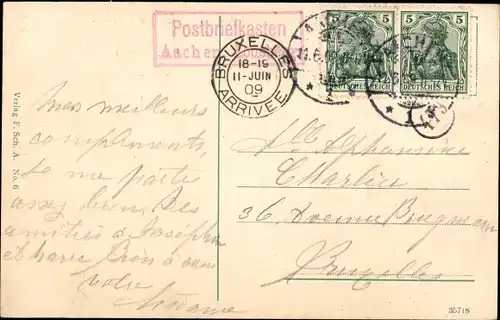 Postbriefkasten
Aachen
BRUXELLES
18-19
11-JUIN
09
ARRIVÉE
AACHEN
11.6.
* 1
5 5
DEUTSCHES REICH
Mes meilleurs
compliments,
je me porte
assez bien. Bes
amitiés à Joséphine
et Marie Bien à vous
votre
Mlle Alphonsine
Charlier
36 Avenue Brugmann
Bruxelles
Verlag F. Sch. A. No. 6
35718